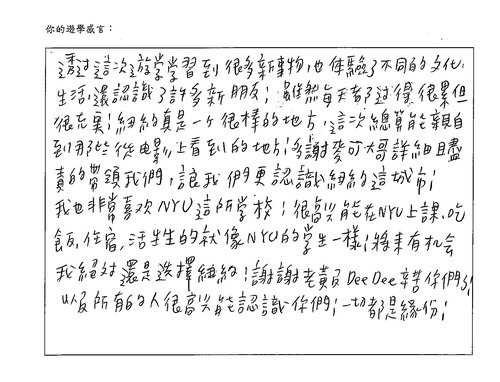 你的遊學感言：
透過這次遊學學習到很多新事物，也体驗了不同的文化、
生活，還認識了許多新朋友；雖然每天都過得很累但
很充實；紐約真是一个很棒的地方，這次總算能親自
到那些從电影上看到的地方；多謝麥可大哥詳細且盡
責的帶領我們，讓我們更認識紐約這城市；
我也非常喜欢NYU這所学校；很高兴能在NYU上課、吃
飯、住宿，活生生的就像NYU的学生一樣；將来有机会
我絕对還是选擇紐約；謝謝老黃及DeeDee辛苦你們了；
以及所有的人很高兴能認識你們；一切都是緣份；